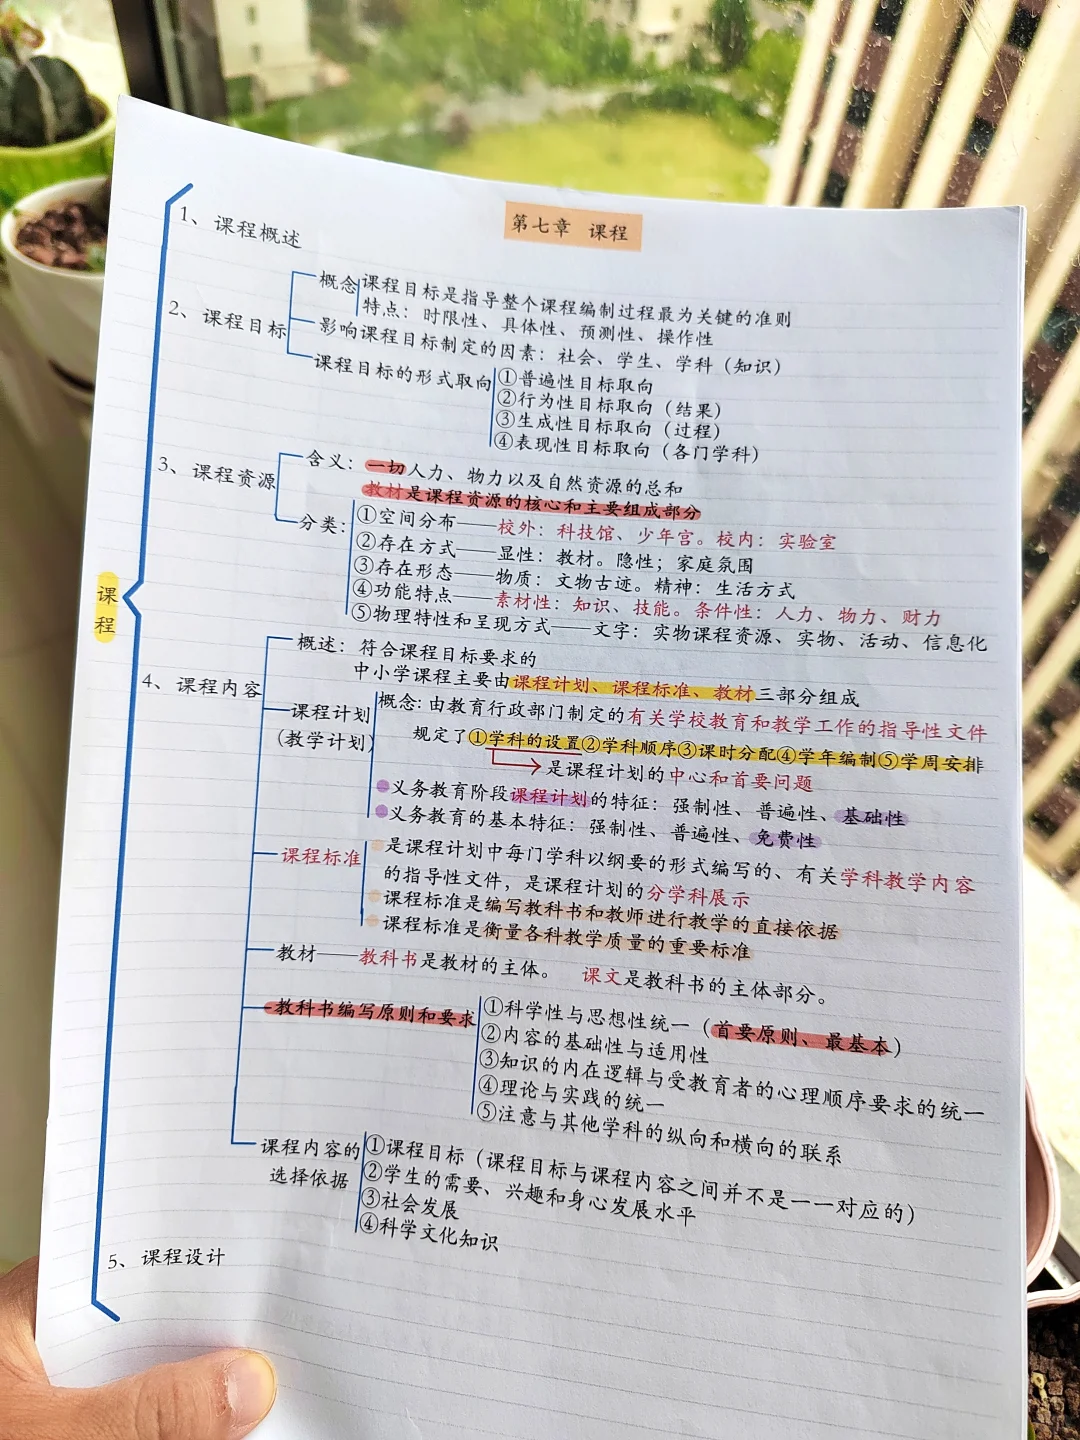 第七章 课程
课程
1、课程概述
2、课程目标
概念
课程目标是指导整个课程编制过程最为关键的准则
特点：时限性、具体性、预测性、操作性
影响课程目标制定的因素：社会、学生、学科（知识）
课程目标的形式取向
①普遍性目标取向
②行为性目标取向（结果）
③生成性目标取向（过程）
④表现性目标取向（各门学科）
3、课程资源
含义：一切人力、物力以及自然资源的总和
教材是课程资源的核心和主要组成部分
分类：
①空间分布——校外：科技馆、少年宫。校内：实验室
②存在方式——显性：教材。隐性；家庭氛围
③存在形态——物质：文物古迹。精神：生活方式
④功能特点——素材性：知识、技能。条件性：人力、物力、财力
⑤物理特性和呈现方式——文字：实物课程资源、实物、活动、信息化
4、课程内容
概述：符合课程目标要求的
中小学课程主要由课程计划、课程标准、教材三部分组成
课程计划
（教学计划）
概念:由教育行政部门制定的有关学校教育和教学工作的指导性文件
规定了①学科的设置②学科顺序③课时分配④学年编制⑤学周安排
是课程计划的中心和首要问题
义务教育阶段课程计划的特征：强制性、普遍性、基础性
义务教育的基本特征：强制性、普遍性、免费性
课程标准
是课程计划中每门学科以纲要的形式编写的、有关学科教学内容
的指导性文件，是课程计划的分学科展示
课程标准是编写教科书和教师进行教学的直接依据
课程标准是衡量各科教学质量的重要标准
教材——教科书是教材的主体。 课文是教科书的主体部分。
教科书编写原则和要求
①科学性与思想性统一（首要原则、最基本）
②内容的基础性与适用性
③知识的内在逻辑与受教育者的心理顺序要求的统一
④理论与实践的统一
⑤注意与其他学科的纵向和横向的联系
课程内容的
选择依据
①课程目标（课程目标与课程内容之间并不是一一对应的）
②学生的需要、兴趣和身心发展水平
③社会发展
④科学文化知识
5、课程设计